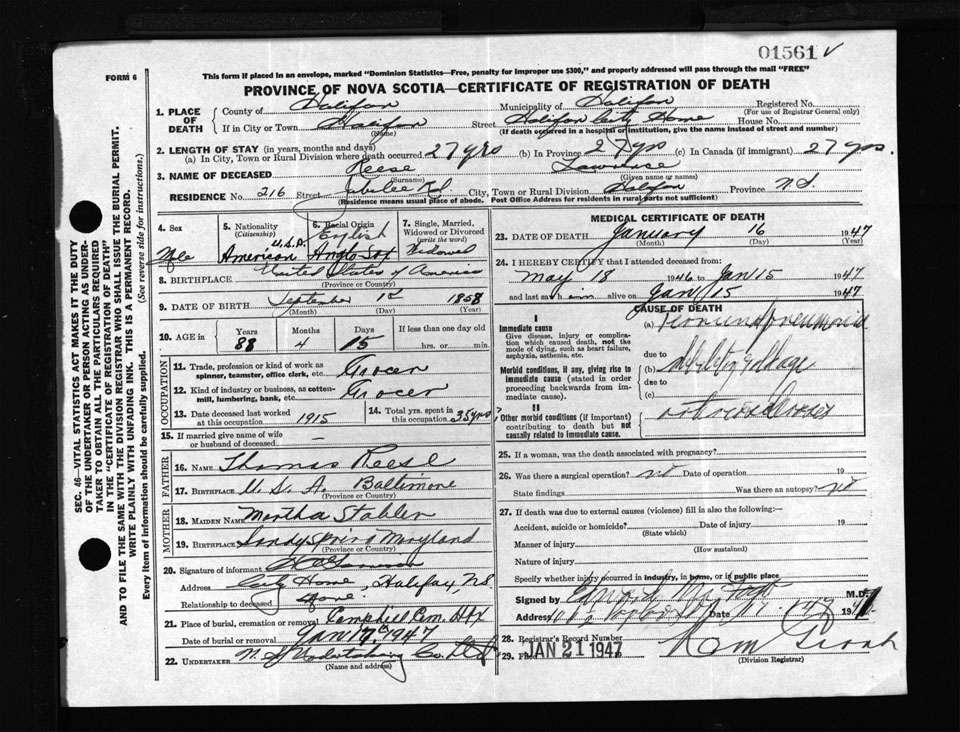 01561 ✓
FORM 6
This form if placed in an envelope, marked "Dominion Statistics—Free, penalty for improper use $300," and properly addressed will pass through the mail "FREE"
PROVINCE OF NOVA SCOTIA—CERTIFICATE OF REGISTRATION OF DEATH
1. PLACE OF DEATH County of Halifax Municipality of Halifax Registered No.
(For use of Registrar General only)
If in City or Town Halifax Street Halifax City Home House No.
(Name) (If death occurred in a hospital or institution, give the name instead of street and number)
2. LENGTH OF STAY (in years, months and days)
(a) In City, Town or Rural Division where death occurred 27 yrs (b) In Province 27 yrs (c) In Canada (if immigrant) 27 yrs.
3. NAME OF DECEASED Reese Lawrence
(Surname) (Given name or names)
RESIDENCE No. 216 Street Jubilee Rd City, Town or Rural Division Halifax Province N.S.
(Residence means usual place of abode. Post Office Address for residents in rural parts not sufficient)
4. Sex Mle
5. Nationality (Citizenship) U.S.A. American
6. Racial Origin English Anglo Sax
7. Single, Married, Widowed or Divorced (write the word) Widowed
8. BIRTHPLACE United States of America
(Province or Country)
9. DATE OF BIRTH September 1st 1858
(Month) (Day) (Year)
10. AGE in Years 88 Months 4 Days 15 If less than one day old hrs. or min.
OCCUPATION
11. Trade, profession or kind of work as spinner, teamster, office clerk, etc. Grocer
12. Kind of industry or business, as cotton-mill, lumbering, bank, etc. Grocer
13. Date deceased last worked at this occupation 1915
14. Total yrs. spent in this occupation 35 yrs?
15. If married give name of wife or husband of deceased —
FATHER
16. NAME Thomas Reese
17. BIRTHPLACE U.S.A. Baltimore
(Province or Country)
MOTHER
18. MAIDEN NAME Martha Stabler
19. BIRTHPLACE Sandy Spring Maryland
(Province or Country)
20. Signature of informant
Address City Home, Halifax, NS
Relationship to deceased None.
21. Place of burial, cremation or removal Camphill Cem. Hfx
Date of burial or removal Jan 17th 1947
22. UNDERTAKER N.S. Undertaking Co. Ltd
(Name and address)
MEDICAL CERTIFICATE OF DEATH
23. DATE OF DEATH January 16 1947
(Month) (Day) (Year)
24. I HEREBY CERTIFY that I attended deceased from:
May 18 1946 to Jan 15 1947
and last saw him alive on Jan 15 1947
CAUSE OF DEATH
I
Immediate cause (a)
Give disease, injury or complication which caused death, not the mode of dying, such as heart failure, asphyxia, asthenia, etc.
due to
Morbid conditions, if any, giving rise to immediate cause (stated in order proceeding backwards from immediate cause). (b)
due to
(c)
II
Other morbid conditions (if important) contributing to death but not causally related to immediate cause.
25. If a woman, was the death associated with pregnancy?
26. Was there a surgical operation? no Date of operation 19
State findings Was there an autopsy? no
27. If death was due to external causes (violence) fill in also the following:—
Accident, suicide or homicide? Date of injury 19
(State which)
Manner of injury
(How sustained)
Nature of injury
Specify whether injury occurred in industry, in home, or in public place
Signed by M.D.
Address Date 194
28. Registrar's Record Number
29. Filed JAN 21 1947
(Division Registrar)
SEC. 46—VITAL STATISTICS ACT MAKES IT THE DUTY
OF THE UNDERTAKER OR PERSON ACTING AS UNDER-
TAKER TO OBTAIN ALL THE PARTICULARS REQUIRED
IN THE "CERTIFICATE OF REGISTRATION OF DEATH"
AND TO FILE THE SAME WITH THE DIVISION REGISTRAR WHO SHALL ISSUE THE BURIAL PERMIT.
WRITE PLAINLY WITH UNFADING INK. THIS IS A PERMANENT RECORD.
Every item of information should be carefully supplied. (See reverse side for instructions.)